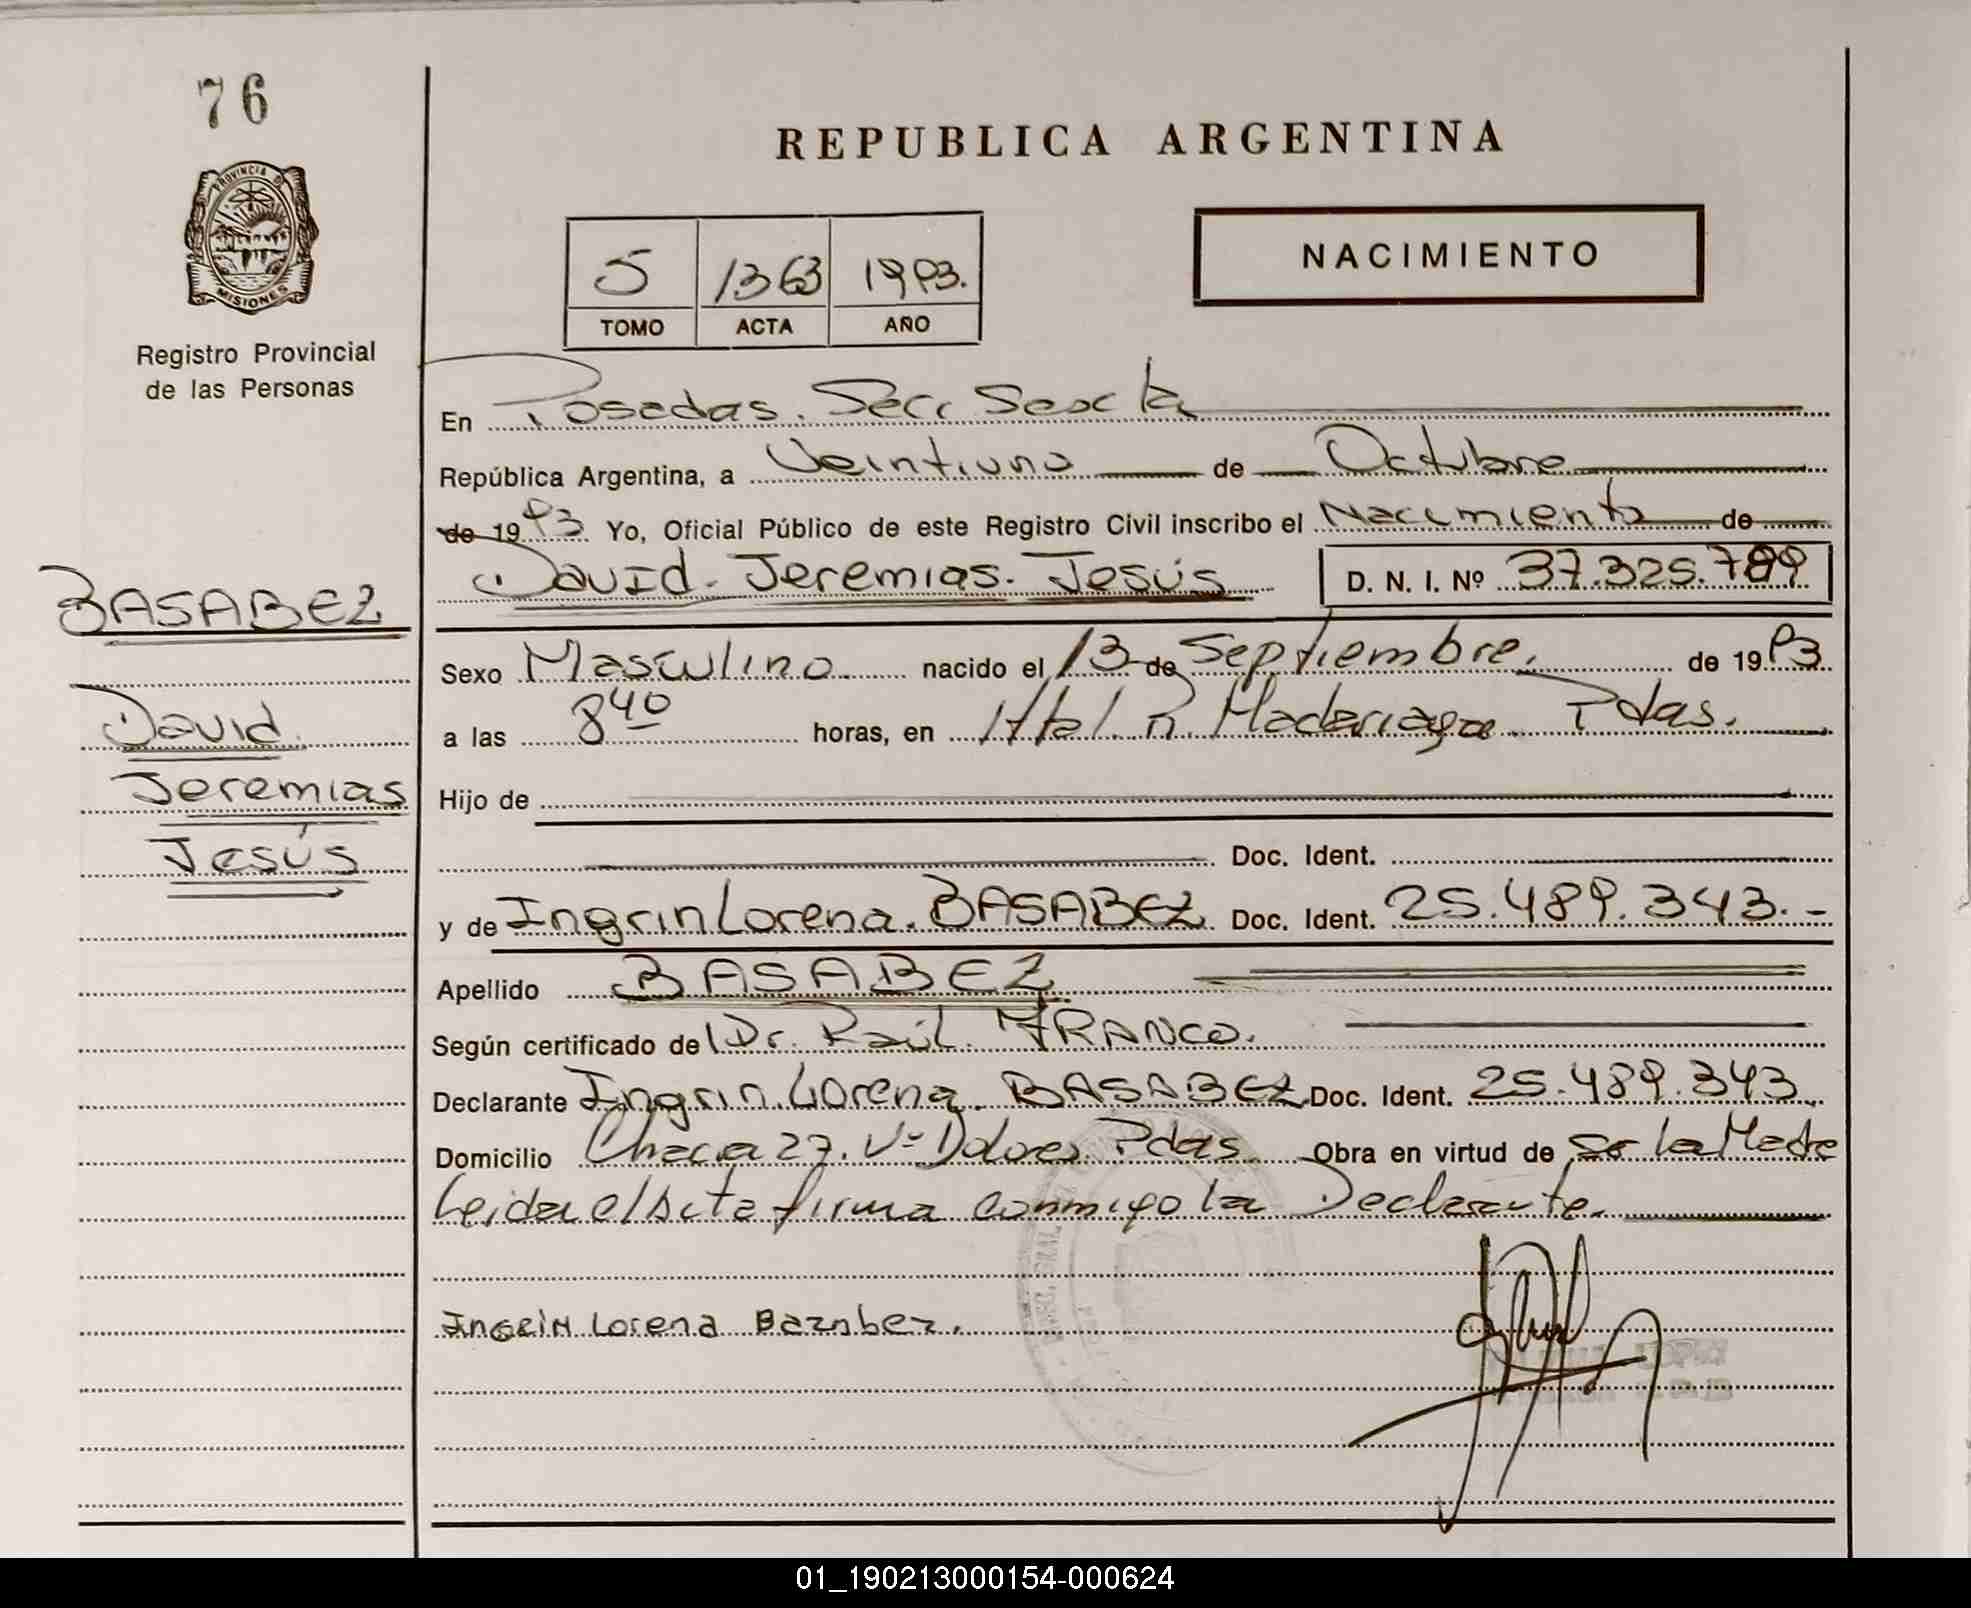 76
PROVINCIA DE
MISIONES
Registro Provincial
de las Personas
REPUBLICA ARGENTINA
NACIMIENTO
5 1363 1993.
TOMO ACTA AÑO
En Posadas. Secc Sexta
República Argentina, a Veintiuno de Octubre
de 1993 Yo, Oficial Público de este Registro Civil inscribo el Nacimiento de
David. Jeremias. Jesús D. N. I. Nº 37.325.789
BASABEZ
David
Jeremias
Jesús
Sexo Masculino nacido el 13 de Septiembre. de 1993
a las 8 40 horas, en Htal. R. Madariaga Pdas.
Hijo de
Doc. Ident.
y de Ingrin Lorena. BASABEZ Doc. Ident. 25.489.343.-
Apellido BASABEZ
Según certificado de Dr. Raúl FRANCO.
Declarante Ingrin Lorena BASABEZ Doc. Ident. 25.489.343
Domicilio Chacra 27. Vª Dolores Pdas Obra en virtud de ser la Madre
Leida el Acta firma conmigo la Declarante.
Ingrin Lorena Bazabez.
01_190213000154-000624